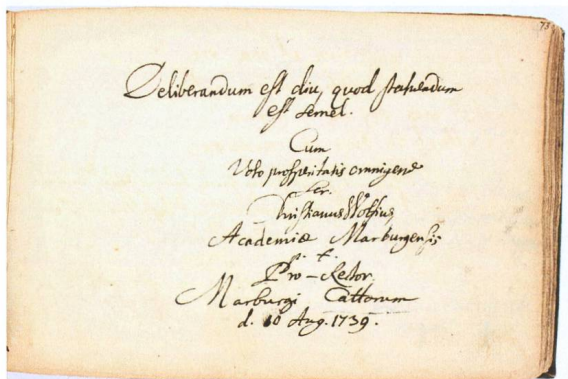 75
Deliberandum est diu, quod statuendum
est semel.
Cum
Voto prosperitatis omnigenæ
scr.
Christianus Wolfius,
Academiæ Marburgensis
p. t.
Pro-Rector.
Marburgi Cattorum
d. 10 Aug. 1739.